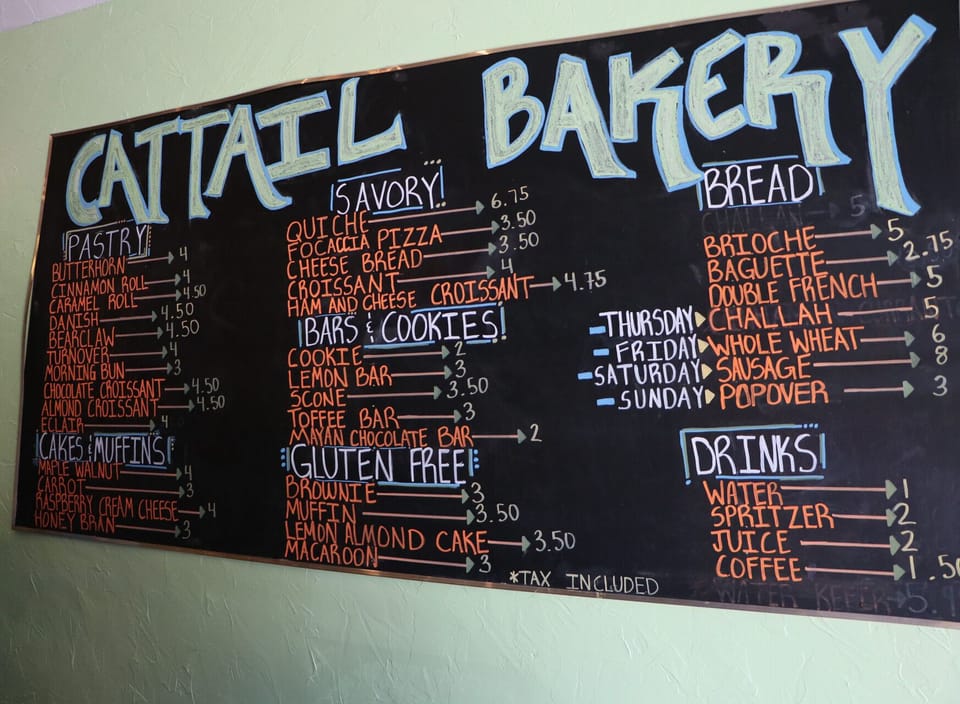 CATTAIL BAKERY
PASTRY
BUTTERHORN 4
CINNAMON ROLL 4
CARAMEL ROLL 4.50
DANISH 4.50
BEARCLAW 4.50
TURNOVER 4
MORNING BUN 3
CHOCOLATE CROISSANT 4.50
ALMOND CROISSANT 4.50
ECLAIR 4
CAKES & MUFFINS
MAPLE WALNUT 4
CARROT 3
RASPBERRY CREAM CHEESE 4
HONEY BRAN 3
SAVORY
QUICHE 6.75
FOCACCIA PIZZA 3.50
CHEESE BREAD 3.50
CROISSANT 4
HAM AND CHEESE CROISSANT 4.75
BARS & COOKIES
COOKIE 2
LEMON BAR 3
SCONE 3.50
TOFFEE BAR 3
MAYAN CHOCOLATE BAR 2
GLUTEN FREE
BROWNIE 3
MUFFIN 3.50
LEMON ALMOND CAKE 3.50
MACAROON 3
*TAX INCLUDED
BREAD
CHALLAH 5
BRIOCHE 5
BAGUETTE 2.75
DOUBLE FRENCH 5
THURSDAY CHALLAH 5
FRIDAY WHOLE WHEAT 6
SATURDAY SAUSAGE 8
SUNDAY POPOVER 3
DRINKS
WATER 1
SPRITZER 2
JUICE 2
COFFEE 1.50
WATER KEFER